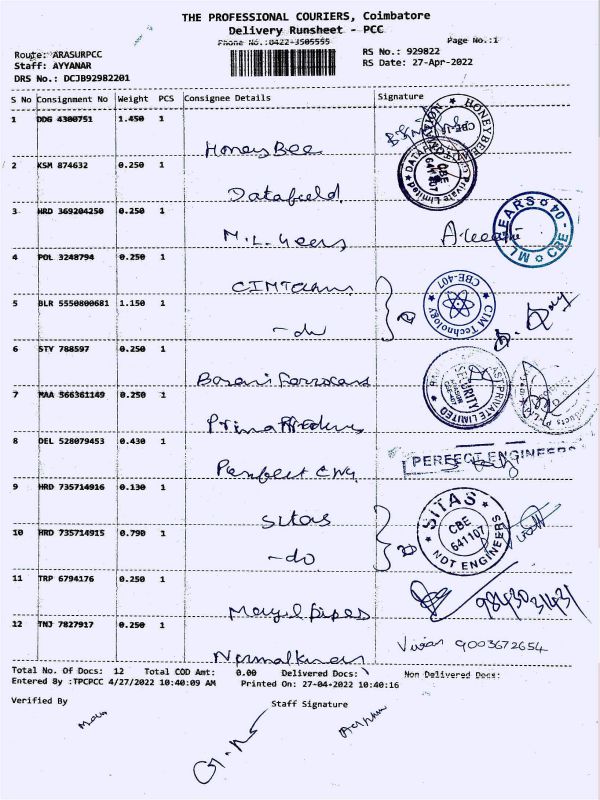 THE PROFESSIONAL COURIERS, Coimbatore
Delivery Runsheet - PCC
Phone No.:0422-3505555
Page No.:1
Route: ARASURPCC
RS No.: 929822
Staff: AYYANAR
RS Date: 27-Apr-2022
DRS No.: DCJB92982201
S No Consignment No Weight PCS Consignee Details Signature
1 DDG 4300751 1.450 1
HoneyBee
HONEYBEE
2 KSM 874632 0.250 1
Datafield
Private Limited
CBE 641 107
3 HRD 369204250 0.250 1
M.L. Gears
M L GEARS CBE - 04
4 POL 3248794 0.250 1
CIM Technology CBE-407
5 BLR 5550800681 1.150 1
- do
6 STY 788597 0.250 1
PRIVATE LIMITED
SECURITY
7 MAA 566361149 0.250 1
8 DEL 528079453 0.430 1
Perfect Eng
PERFECT ENGINEERS
9 HRD 735714916 0.130 1
Sitas
SITAS
CBE
641107
NDT ENGINEERS
10 HRD 735714915 0.790 1
- do
11 TRP 6794176 0.250 1
Mayil pipes
12 TNJ 7827917 0.250 1
9003672654
Total No. Of Docs: 12 Total COD Amt: 0.00 Delivered Docs: Non Delivered Docs:
Entered By :TPCPCC 4/27/2022 10:40:09 AM Printed On: 27-04-2022 10:40:16
Verified By Staff Signature